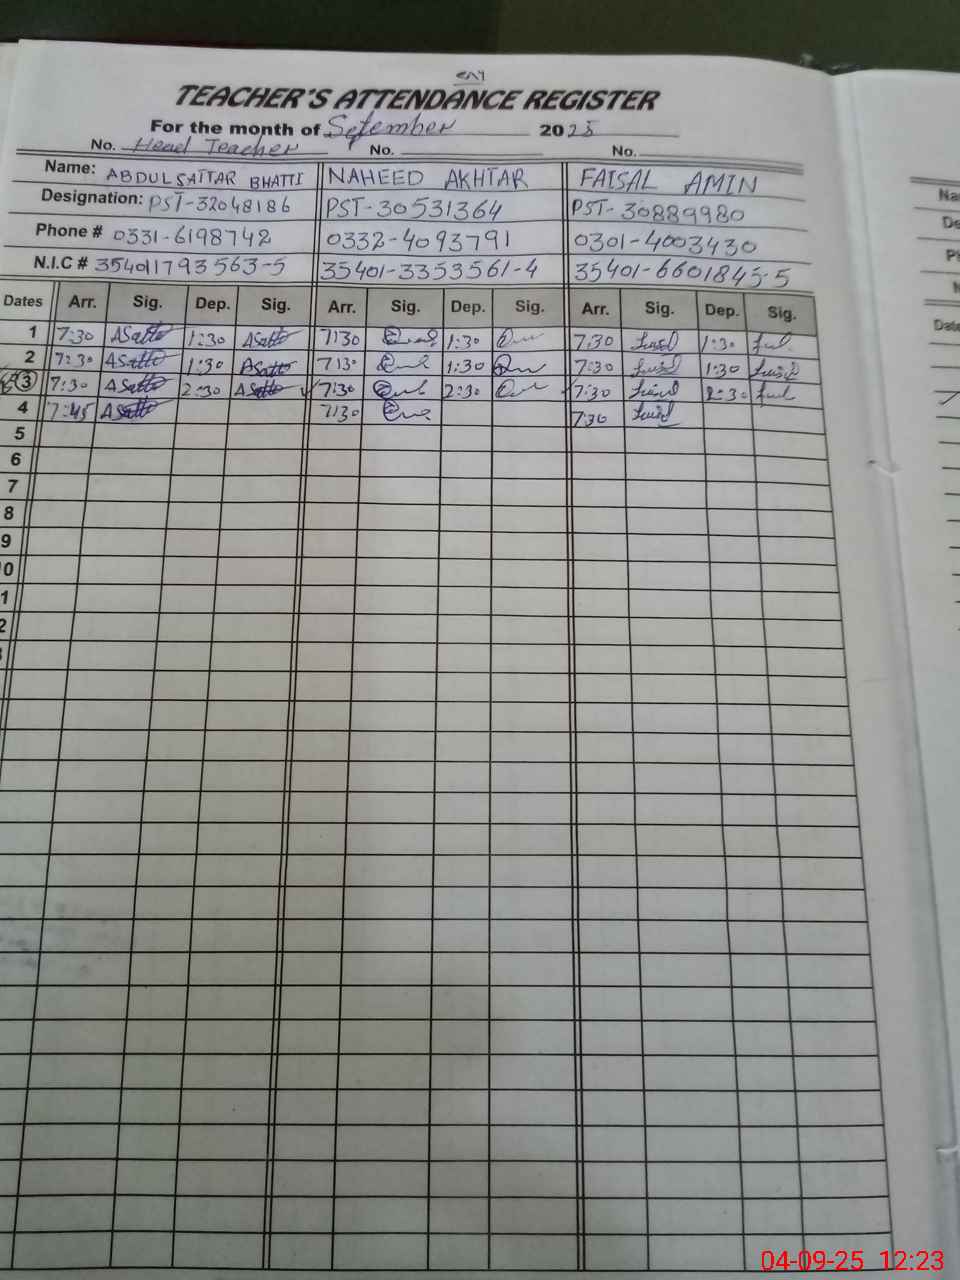 TEACHER'S ATTENDANCE REGISTER
For the month of Setember 2025
No. Head Teacher No. No.
Name: ABDUL SATTAR BHATTI NAHEED AKHTAR FAISAL AMIN
Designation: PST-32048186 PST-30531364 PST-30889980
Phone # 0331-6198742 0332-4093791 0301-4003430
N.I.C # 354011793563-5 35401-3353561-4 35401-6601845-5
Dates Arr. Sig. Dep. Sig. Arr. Sig. Dep. Sig. Arr. Sig. Dep. Sig.
1 7:30 ASatto 1:30 ASatto 7:30 1:30 7:30 1:30
2 7:30 ASatto 1:30 ASatto 7:30 1:30 7:30 1:30
3 7:30 ASatto 2:30 ASatto 7:30 2:30 7:30 2:30
4 7:45 ASatto 7:30 7:30
5
6
7
8
9
0
1
2
04-09-25 12:23